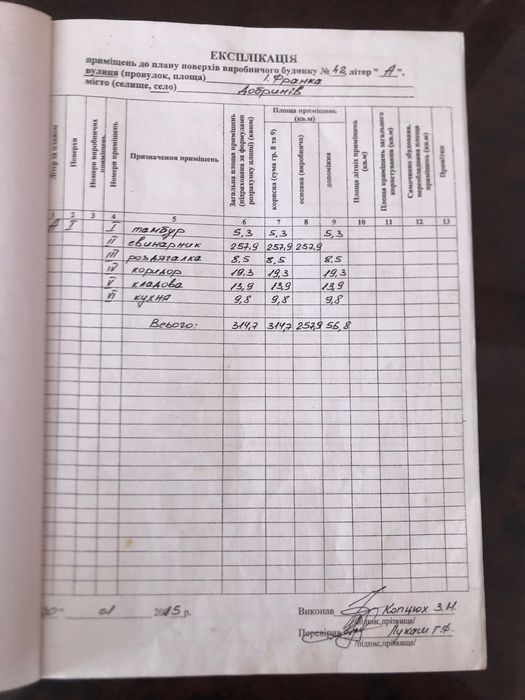 ЕКСПЛІКАЦІЯ
приміщень до плану поверхів виробничого будинку № 42, літер " А ",
вулиця (провулок, площа) І. Франка
місто (селище, село) Добринів
Літер за планом
Поверхи
Номери виробничих приміщень
Номери приміщень
Призначення приміщень
Загальна площа приміщень (підрахована за формулами розрахунку площі) (кв.м)
Площа приміщень (кв.м)
корисна (сума гр. 8 та 9)
основна (виробнича)
допоміжна
Площа літніх приміщень (кв.м)
Площа приміщень загального користування (кв.м)
Самочинно збудована, переобладнана площа приміщень (кв.м)
Примітки
1 2 3 4 5 6 7 8 9 10 11 12 13
А І І тамбур 5,3 5,3 5,3
ІІ свинарник 257,9 257,9 257,9
ІІІ роздягалка 8,5 8,5 8.5
IV коридор 19,3 19,3 19,3
V кладова 13,9 13,9 13,9
VI кухня 9,8 9,8 9,8
Всього: 314,7 314,7 257,9 56,8
30 01 2015 р.
Виконав Копцюх З.М.
/підпис,прізвище/
Перевірив Лукаш Г.Ф.
/підпис,прізвище/